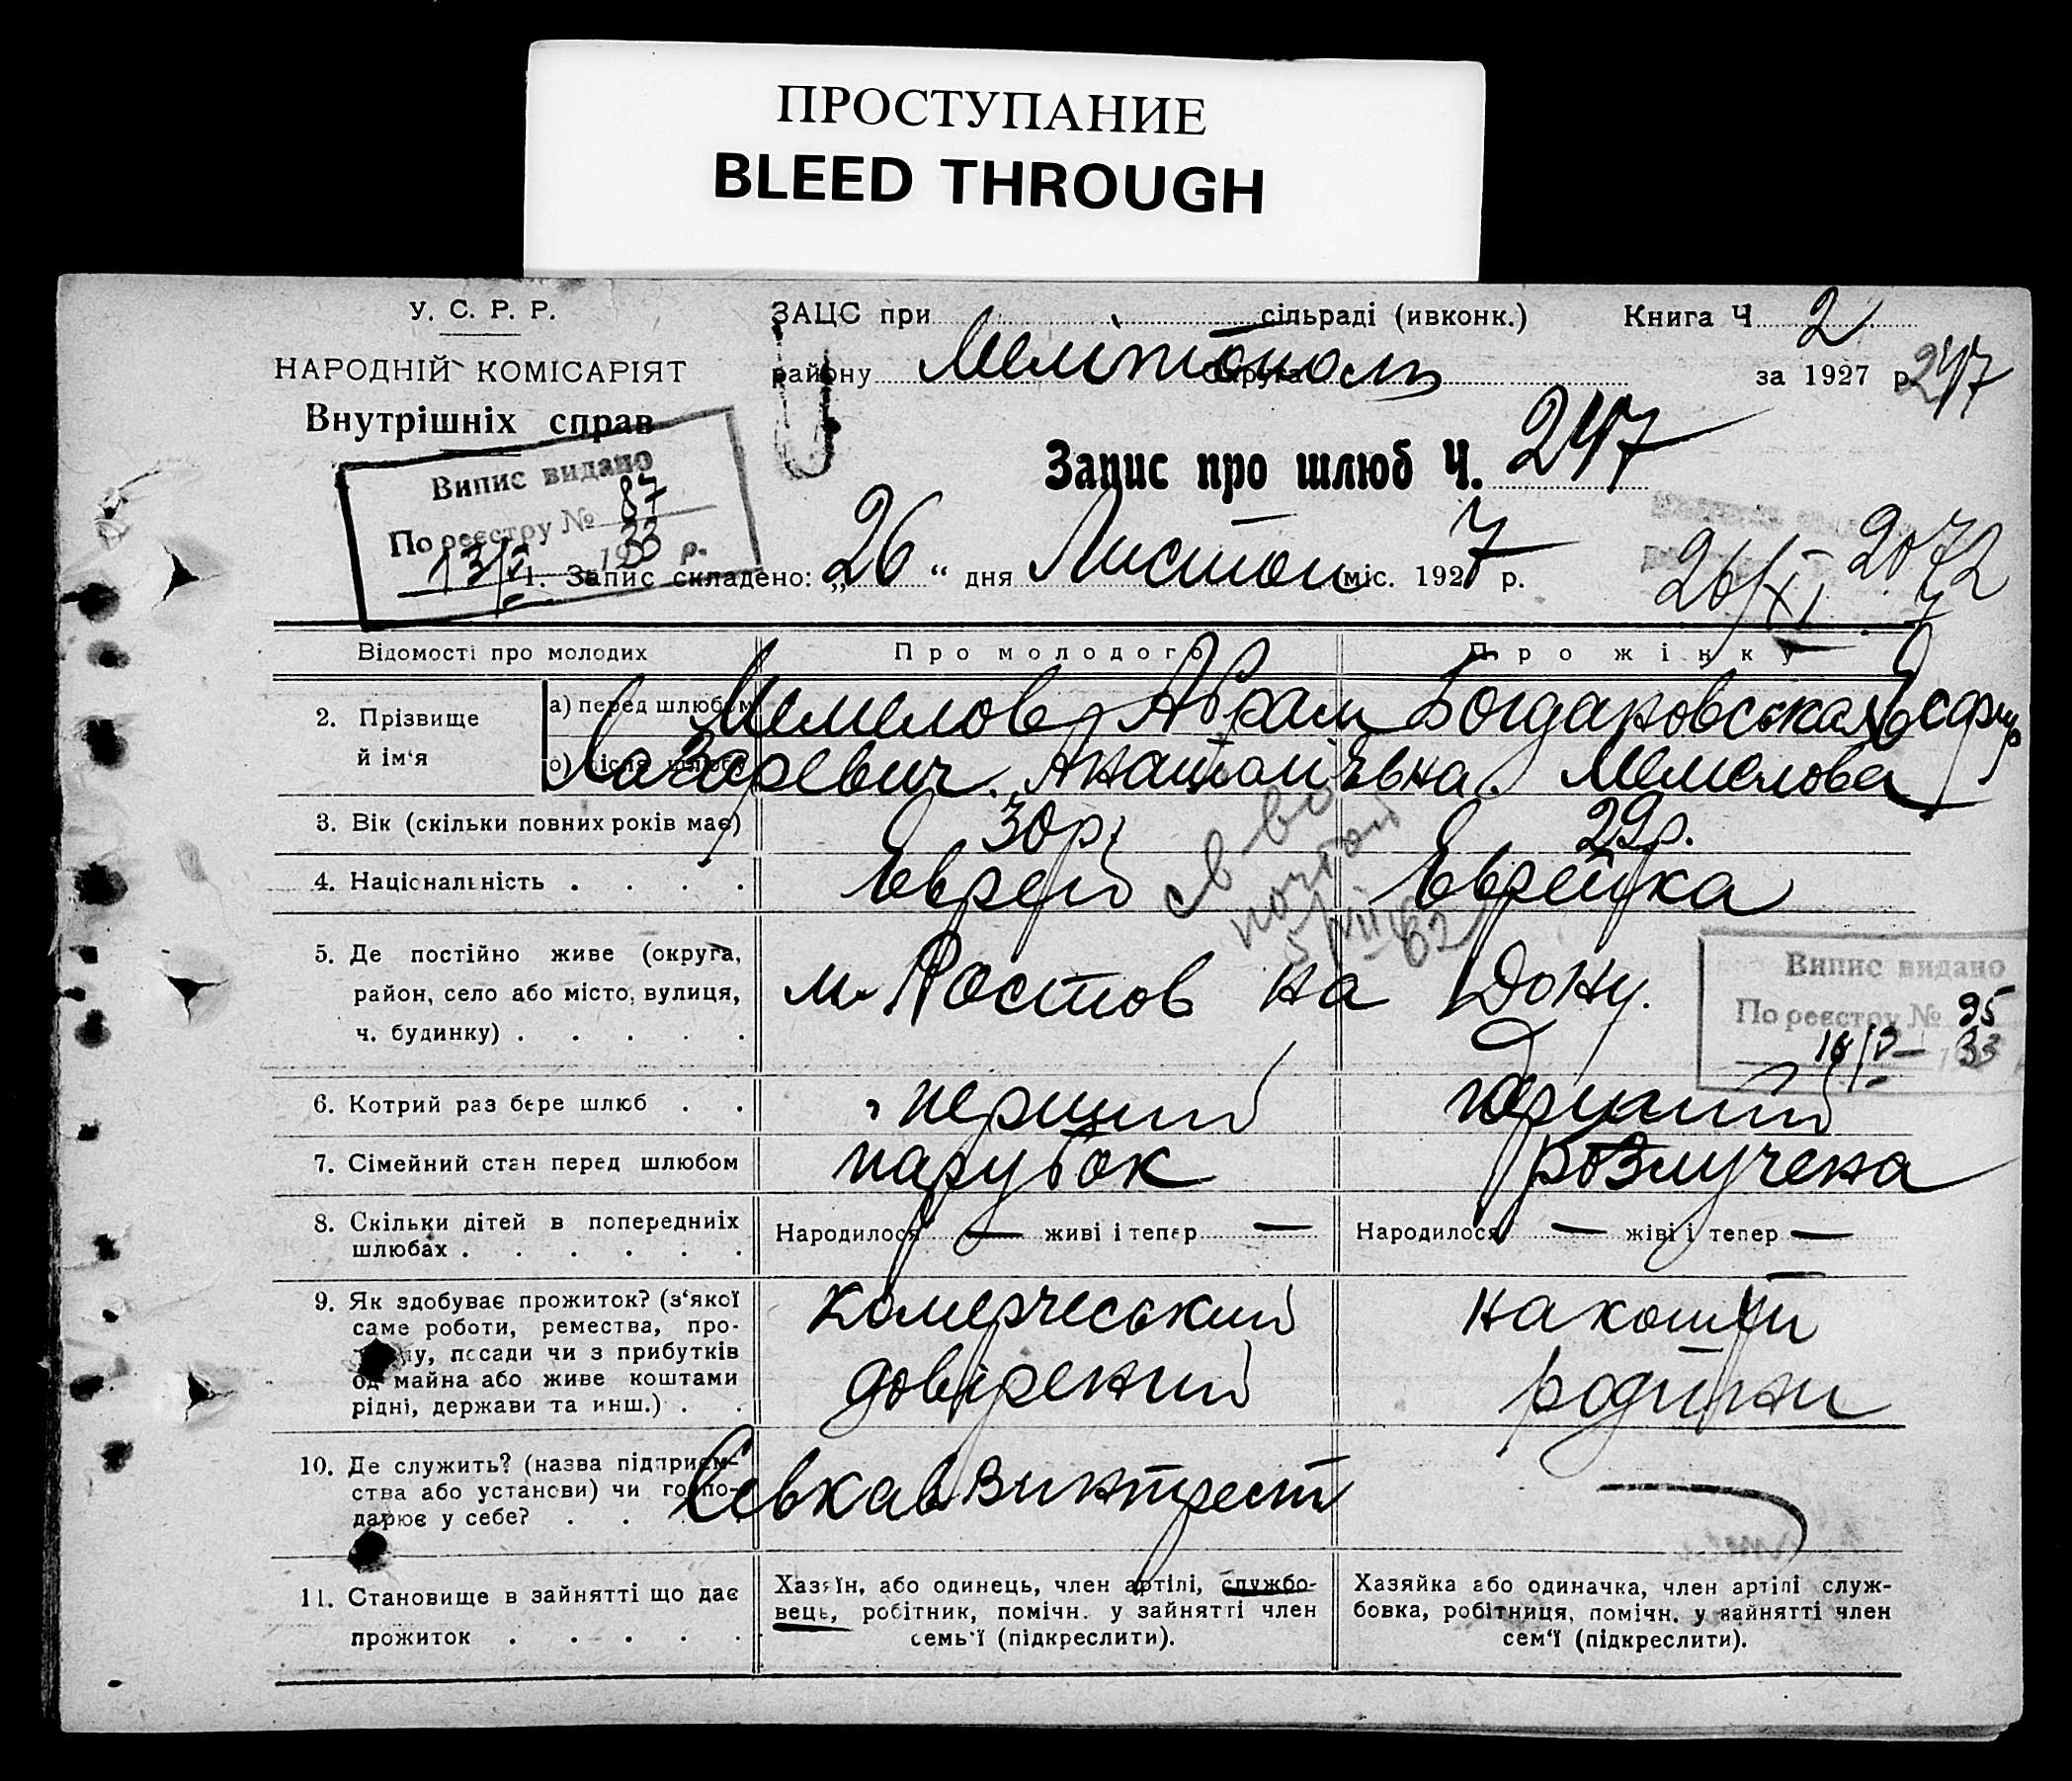 ПРОСТУПАНИЕ
BLEED THROUGH
У. С. Р. Р.
НАРОДНІЙ КОМІСАРІЯТ
Внутрішніх справ
ЗАЦС при сільраді (ивконк.)
району Мелітополь округа
Книга Ч 2
за 1927 р. 247
Випис видано
По реєстру № 87
33 р.
Запис про шлюб Ч. 247
1. Запис складено: „ 26 “ дня Листоп міс. 1927 р.
26/XI 2072
Відомості про молодих
Про молодого
Про жінку
2. Прізвище й ім‘я
а) перед шлюбом
Мемелов Абрам
Лазаревич.
Богдановская Есфир
Анатольевна. Мемелова
3. Вік (скільки повних років має)
30 р.
29 р.
4. Національність . . . .
Еврей
Еврейка
5. Де постійно живе (округа,
район, село або місто, вулиця,
ч. будинку) . . . . .
м. Ростов на Дону.
Випис видано
По реєстру № 95
33
6. Котрий раз бере шлюб . .
перший
другий
7. Сімейний стан перед шлюбом
парубок
розлучена
8. Скільки дітей в попередниіх
шлюбах . . . . . .
Народилося — живі і тепер —
Народилося — живі і тепер —
9. Як здобуває прожиток? (з‘якої
саме роботи, ремества, про-
му, посади чи з прибутків
од майна або живе коштами
рідні, держави та инш.) . .
комерческий
довірений
на кошти
родини
10. Де служить? (назва підприєм-
ства або установи) чи госпо-
дарює у себе? . .
Севкав Винтрест
—
11. Становище в зайнятті що дає
прожиток . . . . .
Хазяїн, або одинець, член артілі, службо-
вець, робітник, помічн. у зайнятті член
семь‘ї (підкреслити).
Хазяйка або одиначка, член артілі служ-
бовка, робітниця, помічн. у зайнятті член
сем‘ї (підкреслити).